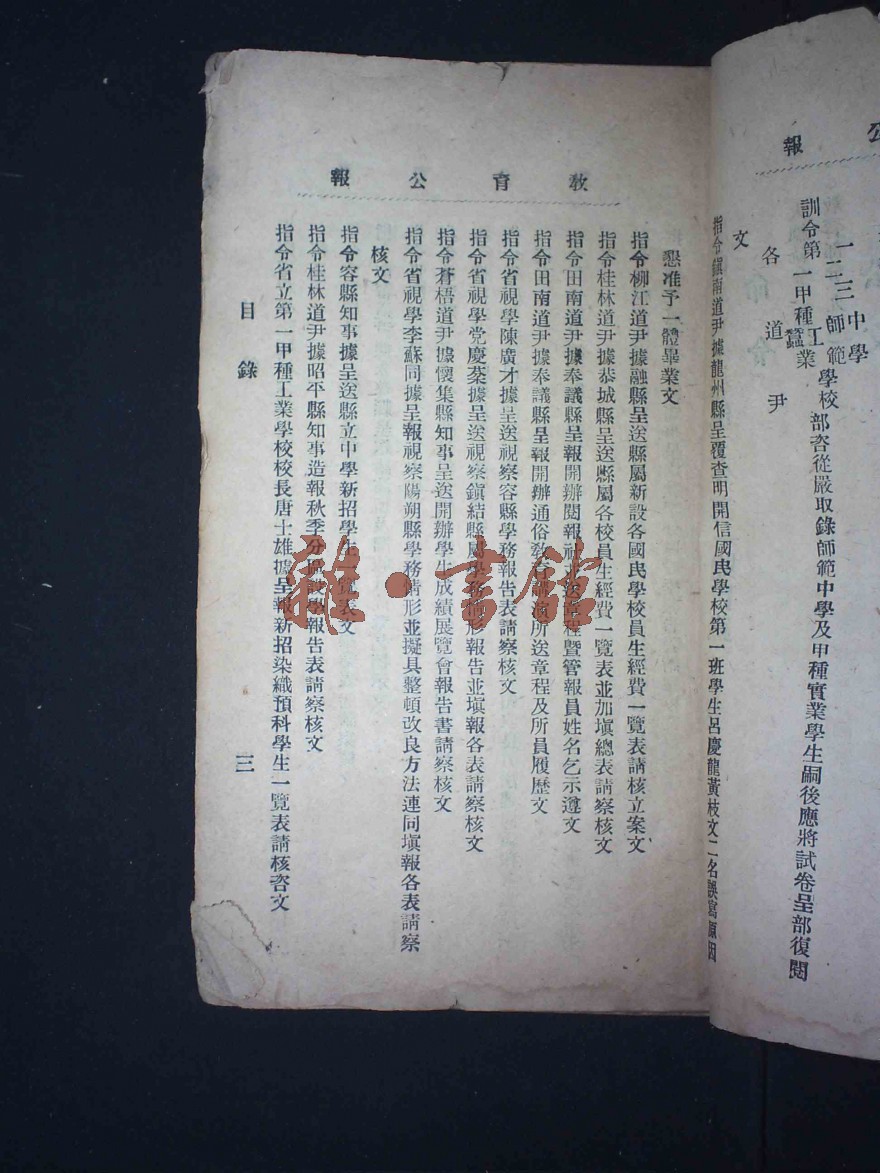 公報
一二三中學
師範
訓令第一甲種工業學校部咨從嚴取錄師範中學及甲種實業學生嗣後應將試卷呈部復閱
蠶業
各道尹
文
指令鎮南道尹據龍州縣呈覆查明開信國民學校第一班學生呂慶龍黃枝文二名誤寫原因
教育公報
懇准予一體畢業文
指令柳江道尹據融縣呈送縣屬新設各國民學校員生經費一覽表請核立案文
指令桂林道尹據恭城縣呈送縣屬各校員生經費一覽表並加塡總表請察核文
指令田南道尹據奉議縣呈報開辦閱報社並送章程暨管報員姓名乞示遵文
指令田南道尹據奉議縣呈報開辦通俗敎育講演所送章程及所員履歷文
指令省視學陳廣才據呈送視察容縣學務報告表請察核文
指令省視學党慶蘂據呈送視察鎭結縣屬學務情形報告並塡報各表請察核文
指令蒼梧道尹據懷集縣知事呈送開辦學生成績展覽會報告書請察核文
指令省視學李蘇同據呈報視察陽朔縣學務情形並擬具整頓改良方法連同塡報各表請察
核文
指令容縣知事據呈送縣立中學新招學生一覽表文
指令桂林道尹據昭平縣知事造報秋季分區設學報告表請察核文
指令省立第一甲種工業學校校長唐士雄據呈報新招染織預科學生一覽表請核咨文
目錄
三
雜·書館